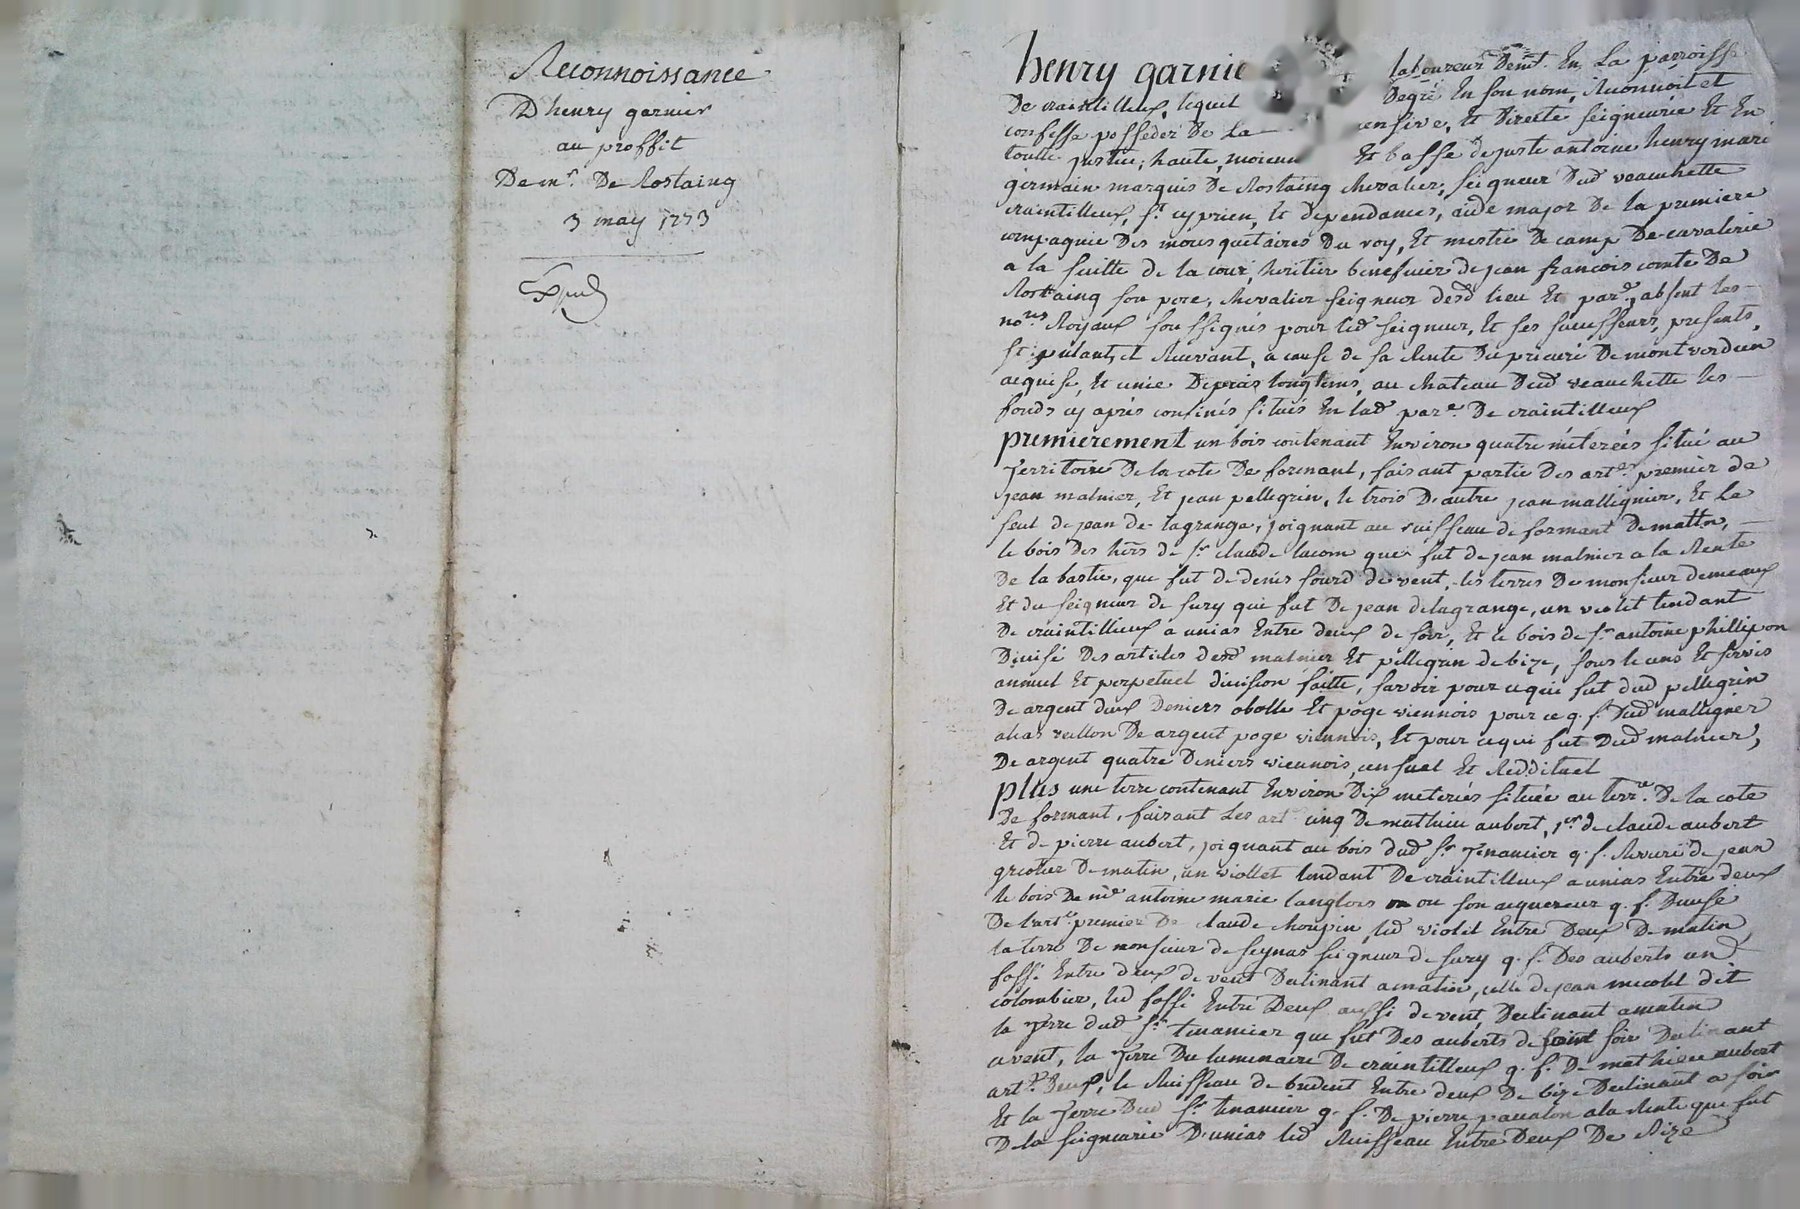 Reconnoissance
D'henry garnier
au proffit
De mr. De Rostaing
3 may 1773
henry garnie laboureur Demt. En La parroisse
De craintilleux, lequel Degré En son nom, Reconnoit et
confesse posseder De La censive, Et Directe seigneurie Et En
toutte justice, haute, moienn Et basse de juste antoine henry mari
germain marquis De Rostaing chevalier, seigneur Dud veauchette
craintilleux, st cyprien, Et dependances, aide major De la premiere
compagnie Des mousquetaires Du roy, Et mestre De camp De cavalerie
a la suitte de la cour, heritier beneficier de jean francois comte De
Rostaing son pere, chevalier seigneur desd lieu Et parr., absent les
nores Royaux soussignés pour led seigneur, Et ses successeurs, presents,
stipulant, et Recevant, a cause de sa Rente Du prieuré De montverdun
acquise, Et unie Depuis longtems, au chateau Dud veauchette les
fonds cy aprés confinés situés En lad parre. De craintilleux
premierement un bois contenant Environ quatre méterées situé au
Territoire De la cote De formant, faisant partie des artes. premier de
jean malnier, Et jean pellegrin, le trois D'autre jean mallignier, Et Le
seul de jean de lagrange, joignant au ruisseau de formant De matin,
le bois Des hers de sr. claude lacom que fut de jean malnier a la Rente
De la bastie, que fut de denis sourd de vent, les terres De monsieur demeaux
Et du seigneur de sury qui fut De jean delagrange, un violet tendant
De craintilleux a unias Entre deux de soir, Et le bois de sr antoine phillipon
Divisé Des articles desd malnier Et pellegrin de bize, sous le cens Et servis
annuel Et perpetuel division faitte, savoir pour ce qui fut dud pellegrin
De argent deux Deniers obolle Et poge viennois pour ce q. f. Dud mallignier
alias vallon De argent poge viennois, Et pour ce qui fut Dud malnier,
De argent quatre Deniers viennois, censuel Et Reddituel
plus une terre contenant Environ Dix meterées située au terre. De la cote
De formant, faisant Les art. cinq De mathieu aubert, 1er de claude aubert
Et de pierre aubert, joignant au bois dud sr. Tenancier q. f. de jean
De matin, un viollet tendant De craintilleux a unias Entre deux
le bois De me antoine marie langlois ou son acquereur q. f. Divisé
De l'arte. premier De claude choupin, led violet Entre Deux De matin
la terre De monsieur de seynas seigneur de sury q. f. Des auberts un
fossé Entre deux de vent Declinant a matin, celle de jean micolet dit
colombier, led fossé Entre Deux aussi de vent Declinant a matin
la Terre dud sr. tenancier que fut Des auberts de soir Declinant
a vent, la Terre Du luminaire De craintilleux q. f. De mathieu aubert
arte. Deux, le Ruisseau de Entre deux De bize Declinant a soir
Et la Terre Dud sr. tenancier q. f. De pierre a la Rente que fut
De la seigneurie D'unias led Ruisseau Entre Deux De Bize